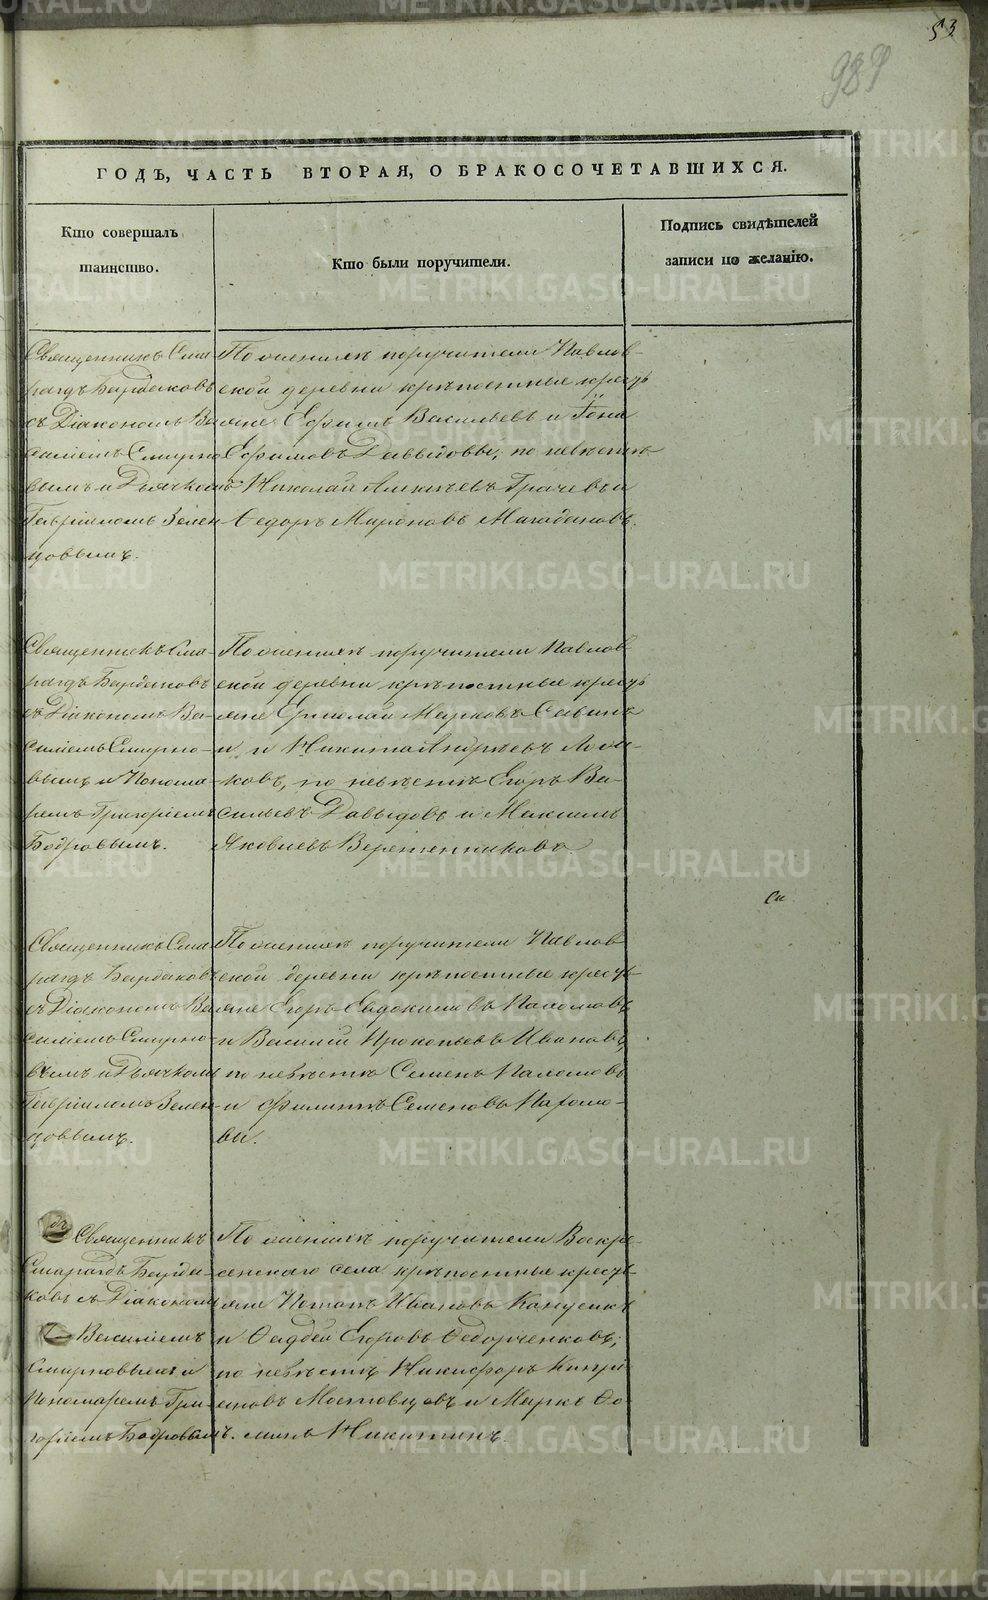 53
989
ГОДЪ, ЧАСТЬ ВТОРАЯ, О БРАКОСОЧЕТАВШИХСЯ.
Кто совершалъ таинство.
Кто были поручители.
Подпись свидѣтелей записи по желанію.
Священникъ Сма-
рагдъ Бардаковъ
съ Діакономъ Ва
силіемъ Смирно
вымъ и Дьячкомъ
Гавріиломъ Зелен
цовымъ.
По женихѣ поручители Павлов-
ской деревни крѣпостные кресть
яне Ефимъ Васильевъ и
Ефимовъ Давыдовы, по невѣстѣ
Николай Алексѣевъ Грачевъ и
Ѳедоръ Мироновъ
Священникъ Сма-
рагдъ Бардаковъ
съ Діакономъ Ва-
силіемъ Смирно-
вымъ и Понома-
ремъ Григоріемъ
Бодровымъ.
По женихѣ поручители Павлов
ской деревни крѣпостные кресть
яне Ермолай Марковъ Савинъ
и Никита Андреевъ
ковъ, по невѣстѣ Егоръ Ва-
сильевъ Давыдовъ и Максимъ
Яковлевъ Веретенниковъ
Си
Священникъ Сма
рагдъ Бардаковъ
съ Діакономъ Ва
силіемъ Смирно-
вымъ и Дьячкомъ
Гавріиломъ Зелен-
цовымъ.
По женихѣ поручители Павлов
ской деревни крѣпостные кресть
яне Егоръ Евдокимовъ Паломовъ
и Василій Прокопьевъ Ивановъ,
по невѣстѣ Семенъ Паломовъ
и Филиппъ Семеновъ
вы.
Священникъ
Смарагдъ Барда-
ковъ съ Діакономъ
Василіемъ
Смирновымъ и
Пономаремъ Гри-
горіемъ Бодровымъ.
По женихѣ поручители Воскре-
сенскаго села крѣпостные кресть-
яне Потапъ Ивановъ
и Ѳаддей Егоровъ Ѳедорченковъ,
по невѣстѣ Никифоръ Кипрі
яновъ Мостовщовъ и Маркъ Ѳо
минъ Никитинъ.
METRIKI.GASO-URAL.RU